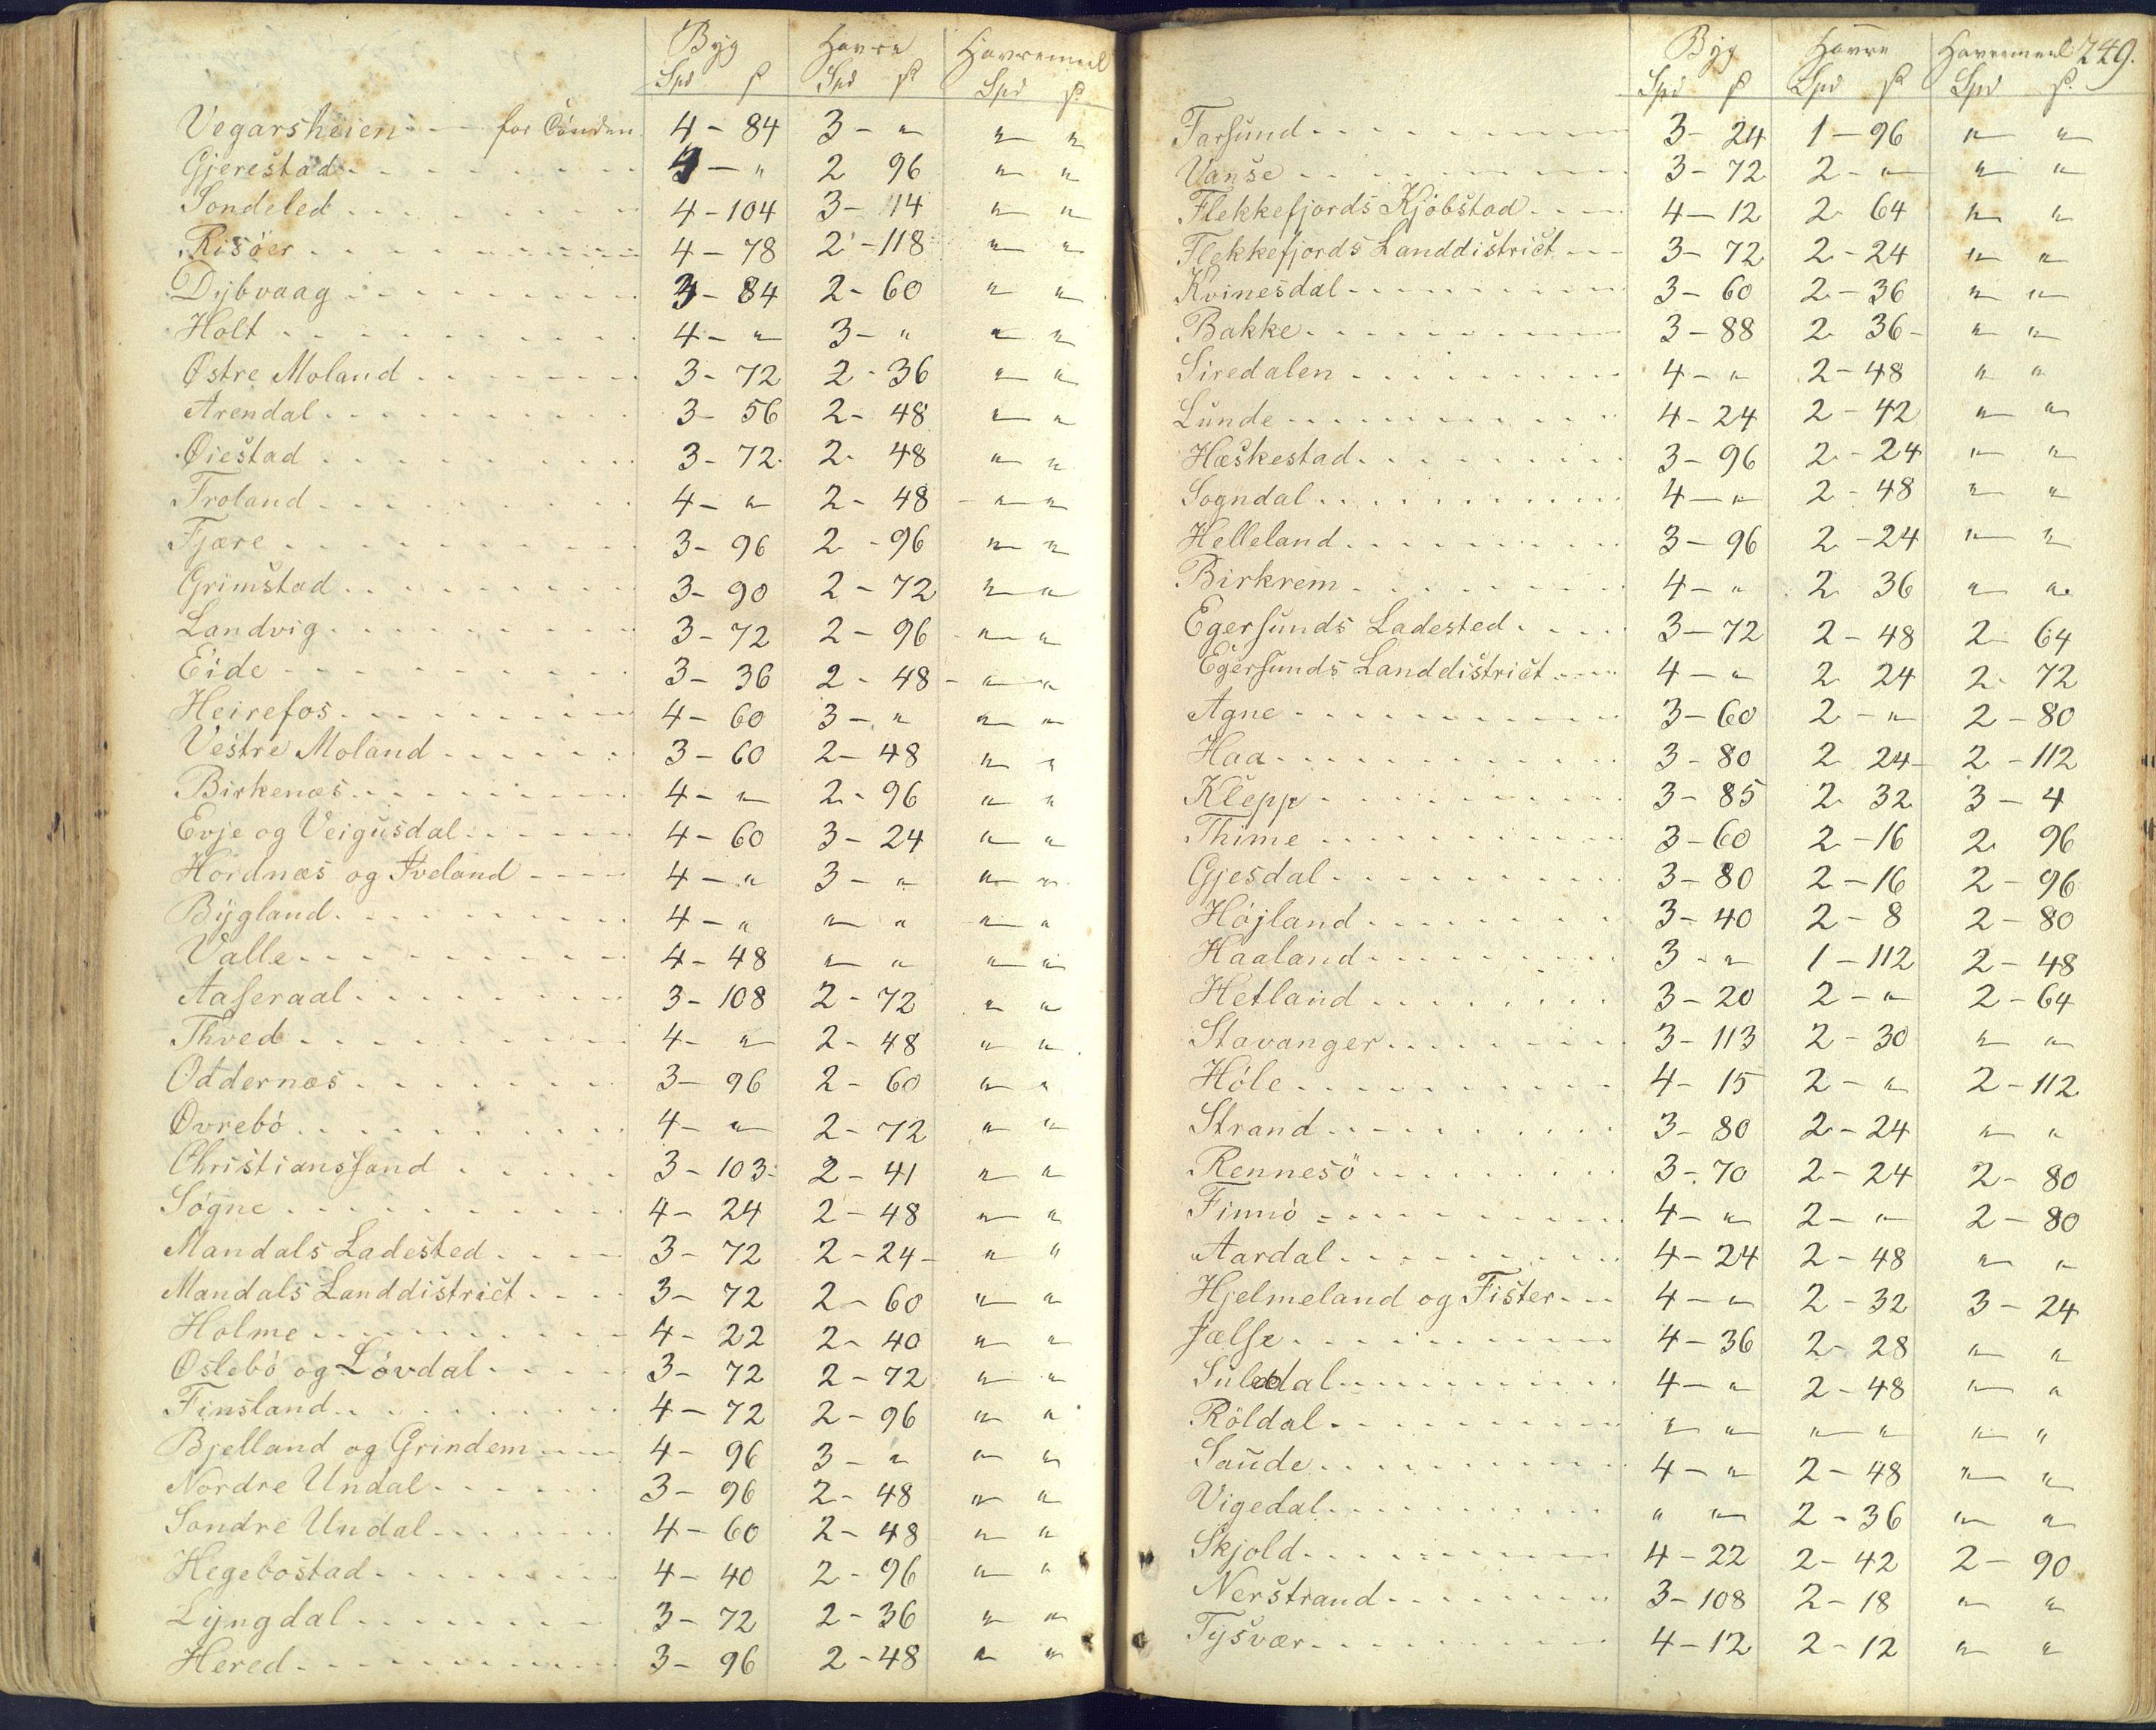 Byg Havre Havremeel
Spd ß Spd ß Spd ß
Vegarsheien - - for Tönden 4 - 84 3 - " " "
Gjerestad - " 2 96 " "
Söndeled 4 - 104 3 - 14 " "
Risöer 4 - 78 2 - 118 " "
Dybvaag 3 - 84 2 - 60 " "
Holt 4 - " 3 - " " "
Østre Moland 3 - 72 2 - 36 " "
Arendal 3 - 56 2 - 48 " "
Øiestad 3 - 72 2 - 48 " "
Froland 4 - " 2 - 48 " "
Fjære 3 - 96 2 - 96 " "
Grimstad 3 - 90 2 - 72 " "
Landvig 3 - 72 2 - 96 " "
Eide 3 - 36 2 - 48 " "
Heirefos 4 - 60 3 - " " "
Vestre Moland 3 - 60 2 - 48 " "
Birkenæs 4 - " 2 - 96 " "
Evje og Veigusdal 4 - 60 3 - 24 " "
Hordnæs og Iveland 4 - " 3 - " " "
Bygland 4 - " " " " "
Valle 4 - 48 " " " "
Aaseraal 3 - 108 2 - 72 " "
Thved 4 - " 2 - 48 " "
Oddernæs 3 - 96 2 - 60 " "
Øvrebö 4 - " 2 - 72 " "
Christianssand 3 - 103 2 - 41 " "
Sögne 4 - 24 2 - 48 " "
Mandals Ladested 3 - 72 2 - 24 " "
Mandals Landdistrict 3 - 72 2 - 60 " "
Holme 4 - 22 2 - 40 " "
Öslebö og Lövdal 3 - 72 2 - 72 " "
Finsland 4 - 72 2 - 96 " "
Bjelland og Grindem 4 - 96 3 - " " "
Nordre Undal 3 - 96 2 - 48 " "
Söndre Undal 4 - 60 2 - 48 " "
Hegebostad 4 - 40 2 - 96 " "
Lyngdal 3 - 72 2 - 36 " "
Hered 3 - 96 2 - 48 " "
Byg Havre Havremeel 249.
Spd ß Spd ß Spd ß
Farsund 3 - 24 1 - 96 " "
Vanse 3 - 72 2 - " " "
Flekkefjords Kjöbstad 4 - 12 2 64 " "
Flekkefjords Landdistrict 3 - 72 2 - 24 " "
Kvinesdal 3 - 60 2 - 36 " "
Bakke 3 - 88 2 36 " "
Siredalen 4 - " 2 - 48 " "
Lunde 4 - 24 2 - 42 " "
Hæskestad 3 - 96 2 - 24 " "
Sogndal 4 - " 2 - 48 " "
Helleland 3 - 96 2 - 24 " "
Birkrem 4 - " 2 36 " "
Egersunds Ladested 3 - 72 2 - 48 2 64
Egersunds Landdistrict 4 - " 2 24 2 - 72
Agne 3 - 60 2 - " 2 - 80
Haa 3 - 80 2 24 2 - 112
Klepp 3 - 85 2 32 3 - 4
Thime 3 - 60 2 - 16 2 96
Gjesdal 3 - 80 2 - 16 2 - 96
Højland 3 - 40 2 - 8 2 - 80
Haaland 3 - " 1 - 112 2 - 48
Hetland 3 - 20 2 - " 2 - 64
Stavanger 3 - 113 2 - 30 " "
Höle 4 - 15 2 - " 2 - 112
Strand 3 - 80 2 - 24 " "
Rennesö 3 - 70 2 - 24 2 - 80
Finnö 4 - " 2 - " 2 - 80
Aardal 4 - 24 2 - 48 " "
Hjelmeland og Fister 4 - " 2 - 32 3 - 24
Jælse 4 - 36 2 - 28 " "
Suledal 4 - " 2 - 48 " "
Röldal " " " " " "
Saude 4 - " 2 - 48 " "
Vigedal " " 2 - 36 " "
Skjold 4 - 22 2 - 42 2 - 90
Nerstrand 3 - 108 2 - 18 " "
Tysvær 4 - 12 2 - 12 " "